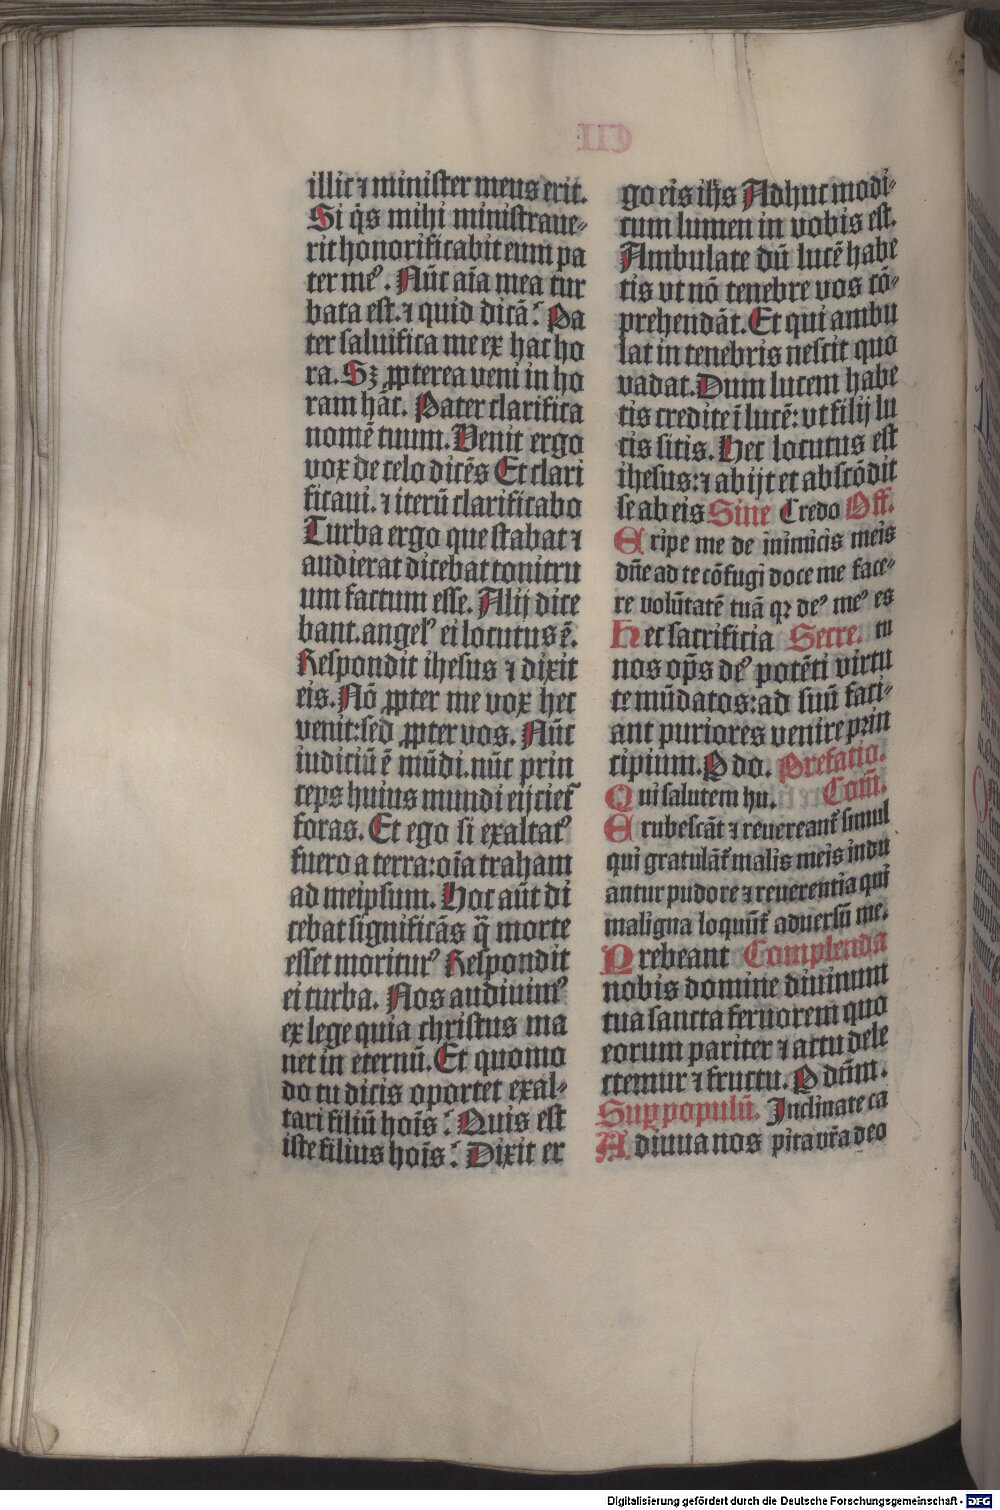 CIII
illic ⁊ minister meus erit.
Si q̄s mihi ministraue-
rit honorificabit eum pa
ter meꝰ. Nūc aīa mea tur
bata est. ⁊ quid dicā? Pa
ter saluifica me ex hac ho
ra. Sꝫ ꝓpterea veni in ho
ram hāc. Pater clarifica
nomē tuum. Venit ergo
vox de celo dicēs Et clari
ficaui. ⁊ iterū clarificabo
Turba ergo que stabat ⁊
audierat dicebat tonitru
um factum esse. Alij dice
bant. angelꝰ ei locutus ē.
Respondit ihesus ⁊ dixit
eis. Nō ꝓpter me vox hec
venit: sed ꝓpter vos. Nūc
iudiciū ē mūdi. nūc prin
ceps huius mundi eijciet᷑
foras. Et ego si exaltatꝰ
fuero a terra: oīa traham
ad meipsum. Hoc aūt di
cebat significās q̄ morte
esset moriturꝰ Respondit
ei turba. Nos audiuimꝰ
ex lege quia christus ma
net in eternū. Et quomo
do tu dicis oportet exal-
tari filiū hoīs? Quis est
iste filius hoīs? Dixit er
go eis ihs̄ Adhuc modi-
cum lumen in vobis est.
Ambulate dū lucē habe
tis vt nō tenebre vos cō-
prehendāt. Et qui ambu
lat in tenebris nescit quo
vadat. Dum lucem habe
tis credite ī lucē: vt filij lu
cis sitis. Hec locutus est
ihesus: ⁊ abijt et abscōdit
se ab eis Sine Credo Off.
Eripe me de inimicis meis
dn̄e ad te cōfugi doce me face-
re volūtatē tuā qꝛ deꝰ meꝰ es tu
Hec sacrificia Secre.
nos op̄s deꝰ potēti virtu
te mūdatos: ad suū faci-
ant puriores venire prin
cipium. P do. Prefatio.
Qui salutem hu. Com̄.
Erubescāt ⁊ reuereant᷑ simul
qui gratulāt᷑ malis meis indu
antur pudore ⁊ reuerentia qui
maligna loquūt᷑ aduersū me.
Prebeant Complenda
nobis domine diuinum
tua sancta feruorem quo
eorum pariter ⁊ actu dele
ctemur ⁊ fructu. P dūm.
Suꝑ populū. Inclinate ca
Adiuua nos pita vr̄a deo
Digitalisierung gefördert durch die Deutsche Forschungsgemeinschaft - DFG